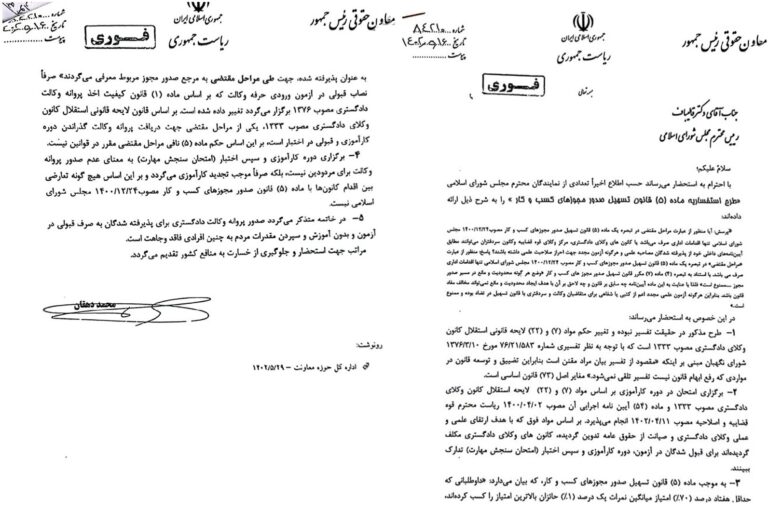 جمهوری اسلامی ایران
ریاست جمهوری
معاون حقوقی رئیس جمهور
شماره ۸۴۲۱۰
تاریخ ۱۴۰۲/۰۹/۱۶
پیوست
فــوری
بسمه تعالی
جناب آقای دکتر قالیباف
رییس محترم مجلس شورای اسلامی
سلام علیکم؛
با احترام به استحضار می‌رساند حسب اطلاع اخیراً تعدادی از نمایندگان محترم مجلس شورای اسلامی
«طرح استفساریه ماده (۵) قانون تسهیل صدور مجوزهای کسب و کار » را به شرح ذیل ارائه
داده‌اند:
«پرسش: آیا منظور از عبارت مراحل مقتضی در تبصره یک ماده (۵) قانون تسهیل صدور مجوزهای کسب و کار مصوب ۱۴۰۰/۱۲/۲۴ مجلس
شورای اسلامی تنها اقدامات اداری صرف می‌باشد یا کانون های وکلای دادگستری، مرکز وکلای قوه قضاییه و کانون سردفتران می‌توانند مطابق
آیین‌نامه‌های داخلی خود از پذیرفته شدگان مصاحبه علمی و هرگونه آزمون مجدد جهت احراز صلاحیت علمی داشته باشند؟ پاسخ: منظور از عبارت
«مراحل مقتضی» در تبصره یک ماده (۵) قانون تسهیل صدور مجوزهای کسب و کار مصوب ۱۴۰۰/۱۲/۲۴ مجلس شورای اسلامی تنها اقدامات اداری
صرف می باشد. با استناد به تبصره (۴) ماده (۷) مکرر قانون تسهیل صدور مجوز های کسب و کار «وضع هر گونه محدودیت و مانع در مسیر صدور
مجوز ...ممنوع است» فلذا با عنایت به این ماده آیین‌نامه چه سابق بر قانون و چه لاحق بر آن با هدف ایجاد محدودیت و مانع نمی‌تواند مخالف مفاد
قانون باشد. بنابراین هرگونه آزمون علمی مجدد اعم از کتبی یا شفاهی برای متقاضیان وکالت و سردفتری با قانون تسهیل در تضاد بوده و ممنوع
است.»
در این خصوص به استحضار می‌رساند:
۱- طرح مذکور در حقیقت تفسیر نبوده و تغییر حکم مواد (۷) و (۲۲) لایحه قانونی استقلال کانون
وکلای دادگستری مصوب ۱۳۳۳ است که با توجه به نظر تفسیری شماره ۷۶/۲۱/۵۸۳ مورخ ۱۳۷۶/۳/۱۰
شورای نگهبان مبنی بر اینکه «مقصود از تفسیر بیان مراد مقنن است بنابراین تضییق و توسعه قانون در
مواردی که رفع ابهام قانون نیست تفسیر تلقی نمی‌شود.» مغایر اصل (۷۳) قانون اساسی است.
۲- برگزاری امتحان در دوره کارآموزی بر اساس مواد (۷) و (۲۲) لایحه استقلال کانون وکلای
دادگستری مصوب ۱۳۳۳ و ماده (۵۴) آیین نامه اجرایی آن مصوب ۱۴۰۰/۰۴/۰۲ ریاست محترم قوه
قضاییه و اصلاحیه مصوب ۱۴۰۲/۰۴/۱۱ انجام می‌پذیرد. بر اساس مواد فوق که با هدف ارتقای علمی و
عملی وکلای دادگستری و صیانت از حقوق عامه تدوین گردیده، کانون های وکلای دادگستری مکلف
گردیده‌اند برای قبول شدگان در آزمون، دوره کارآموزی و سپس اختبار (امتحان سنجش مهارت) تدارک
ببینند.
۳- به موجب ماده (۵) قانون تسهیل صدور مجوزهای کسب و کار، که بیان می‌دارد: «داوطلبانی که
حداقل هفتاد درصد (۷۰٪) امتیاز میانگین نمرات یک درصد (۱٪) حائزان بالاترین امتیاز را کسب کرده‌اند،
جمهوری اسلامی ایران
ریاست جمهوری
معاون حقوقی رئیس جمهور
شماره
تاریخ
پیوست
فــوری
به عنوان پذیرفته شده، جهت طی مراحل مقتضی به مرجع صدور مجوز مربوط معرفی می‌گردند» صرفاً
نصاب قبولی در آزمون ورودی حرفه وکالت که بر اساس ماده (۱) قانون کیفیت اخذ پروانه وکالت
دادگستری مصوب ۱۳۷۶ برگزار می‌گردد تغییر داده شده است. بر اساس قانون لایحه قانونی استقلال کانون
وکلای دادگستری مصوب ۱۳۳۳، یکی از مراحل مقتضی جهت دریافت پروانه وکالت گذراندن دوره
کارآموزی و قبولی در اختبار است، بر این اساس حکم ماده (۵) نافی مراحل مقتضی مقرر در قوانین نیست.
۴- برگزاری دوره کارآموزی و سپس اختبار (امتحان سنجش مهارت) به معنای عدم صدور پروانه
وکالت برای مردودین نیست، بلکه صرفاً موجب تجدید کارآموزی می‌گردد و بر این اساس هیچ گونه تعارضی
بین اقدام کانون‌ها با ماده (۵) قانون صدور مجوزهای کسب و کار مصوب۱۴۰۰/۱۲/۲۴ مجلس شورای
اسلامی نیست.
۵- در خاتمه متذکر می‌گردد صدور پروانه وکالت دادگستری برای پذیرفته شدگان به صرف قبولی در
آزمون و بدون آموزش و سپردن مقدرات مردم به چنین افرادی فاقد وجاهت است.
مراتب جهت استحضار و جلوگیری از خسارت به منافع کشور تقدیم می‌گردد.
محمد دهقان
رونوشت:
اداره کل حوزه معاونت - ۱۴۰۲/۵/۲۹